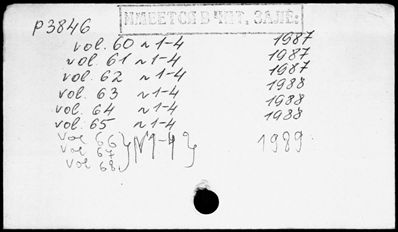 P3846
ИМЕЕТСЯ В ЧИТ. ЗАЛЕ.
vol. 60 ~ 1-4 1987
vol. 61 ~ 1-4 1987
vol. 62 ~ 1-4 1987
vol. 63 ~ 1-4 1988
vol. 64 ~ 1-4 1988
vol. 65 ~ 1-4 1988
vol 66 } N 1-4 } 1989
vol 67
vol 68